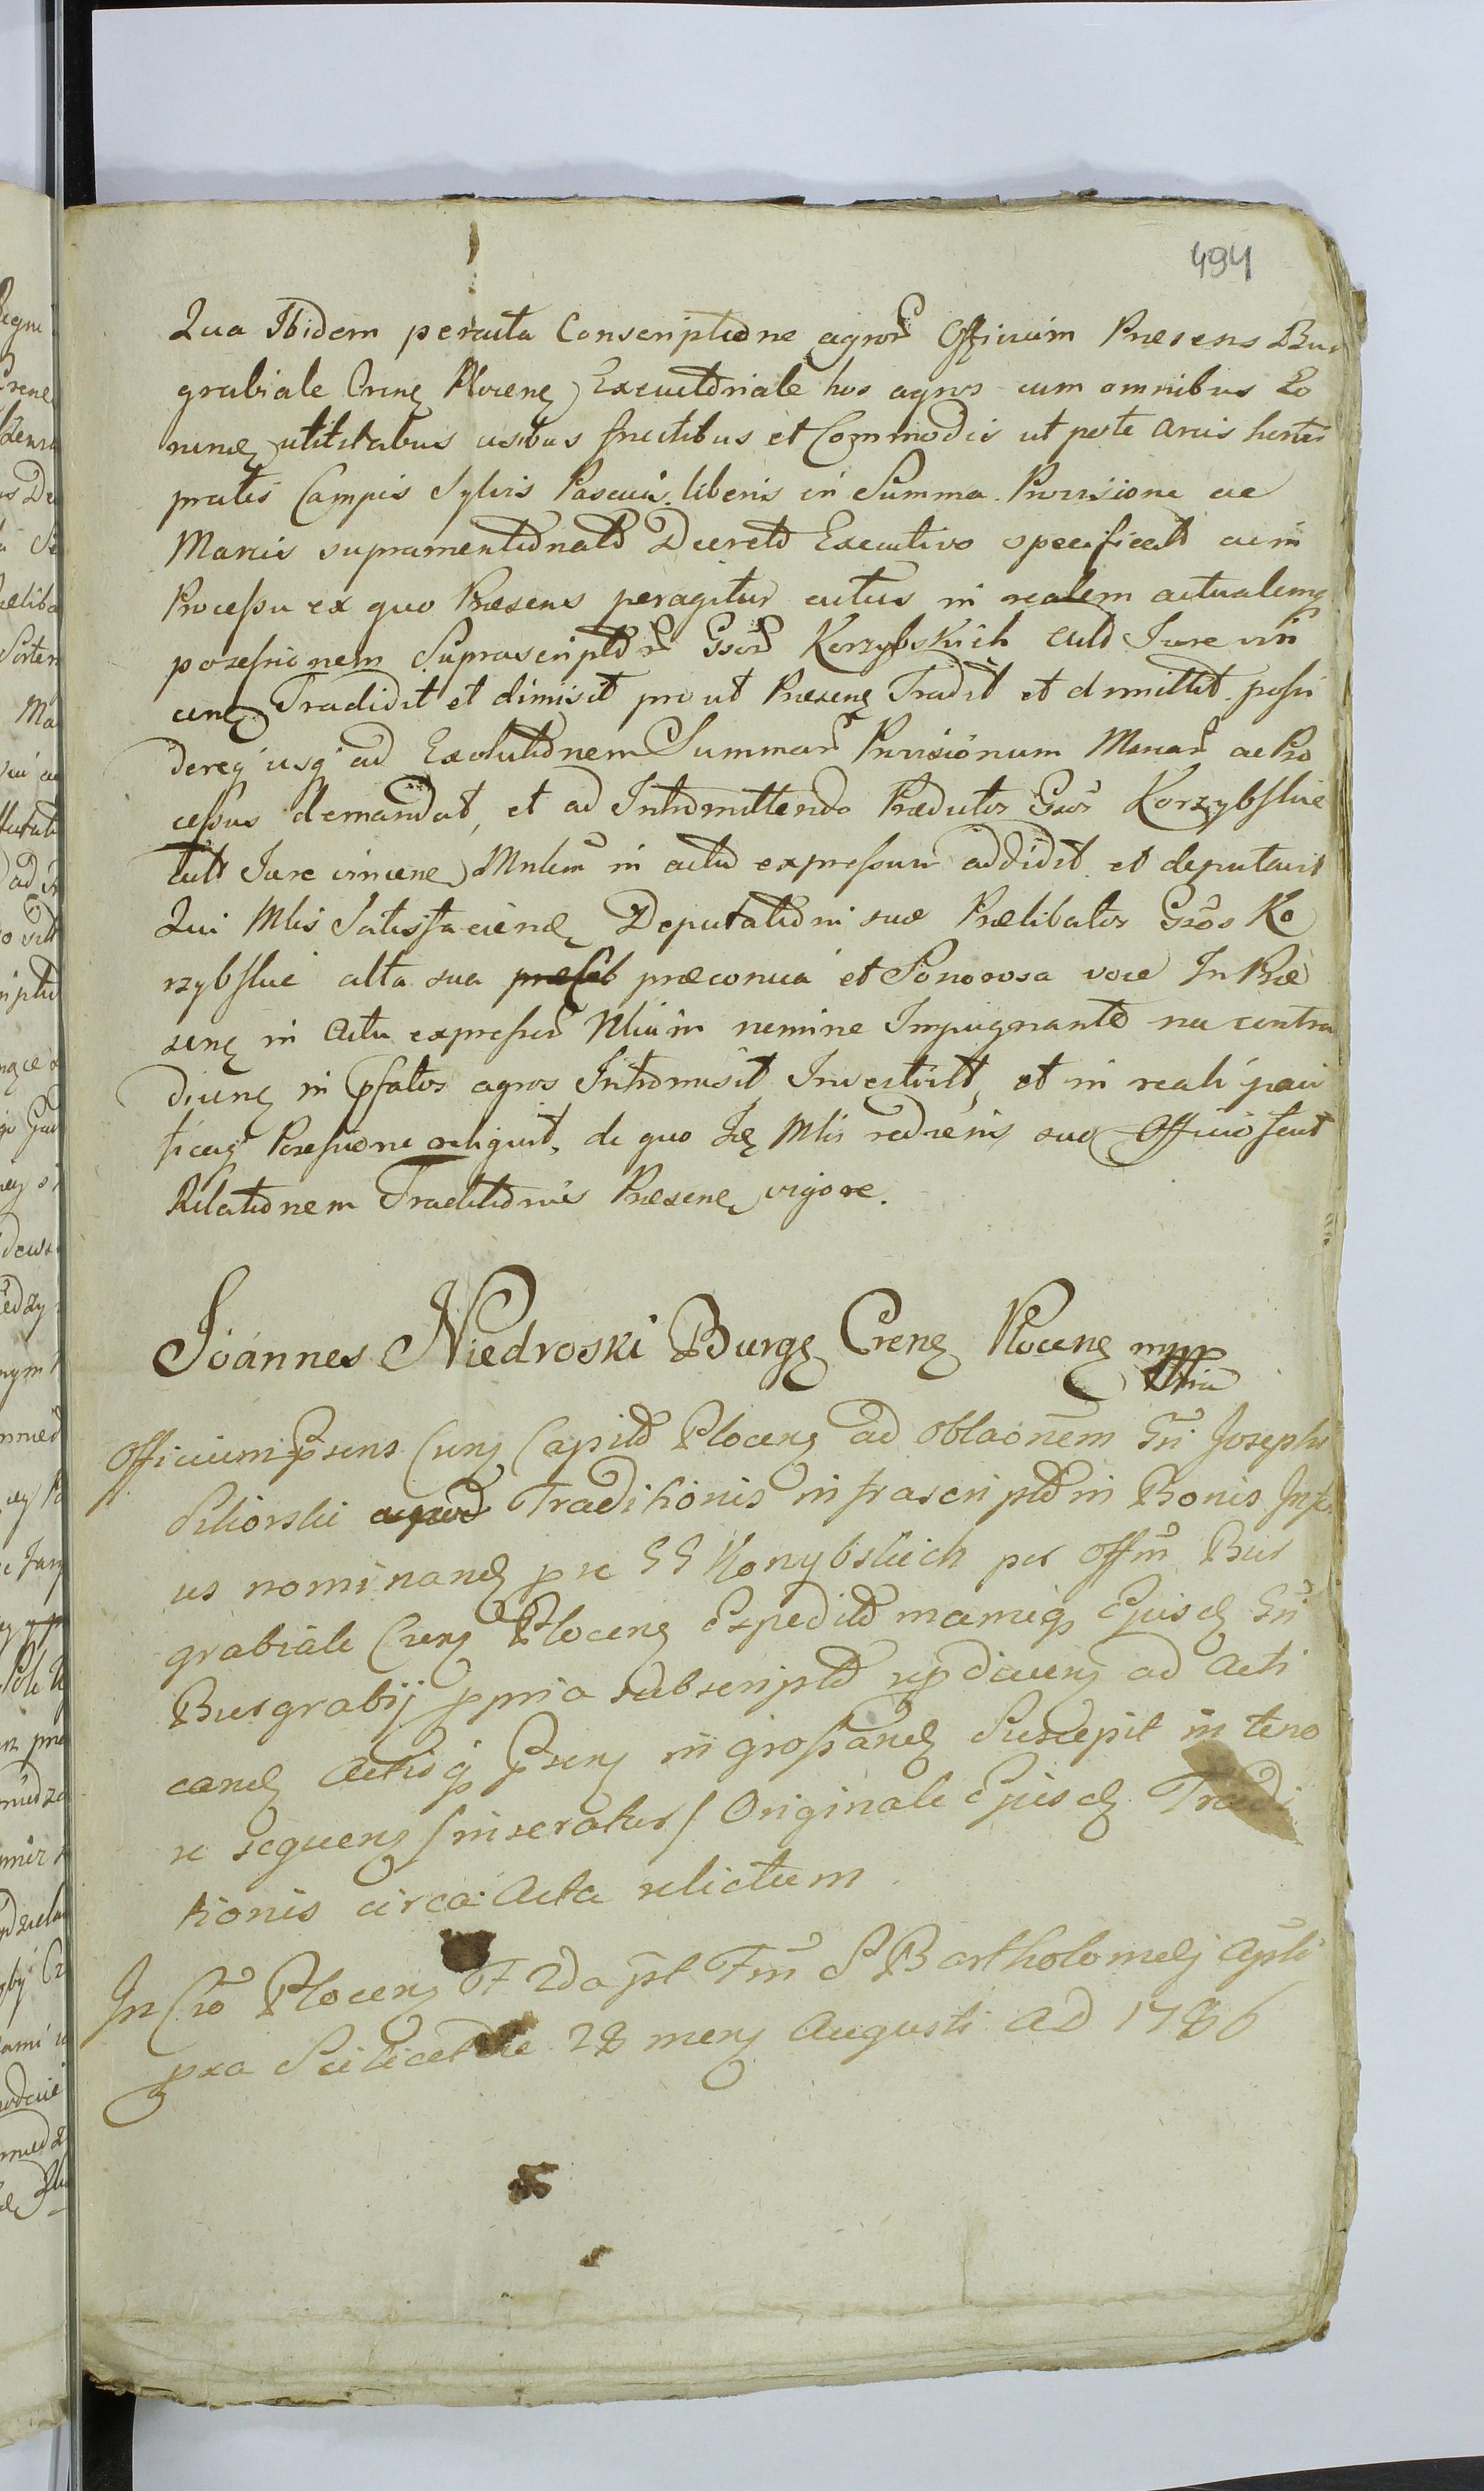 494
Qua Ibidem peracta Conscriptione agror Officium Præsens Bur
grabiale Crenς Plocenς Executoriale hos agros cum omnibus Eo
rundς utilitatibus usibus fructibus et Commodis ut pote Areis hortis
pratis Campis Sylvis Pascuis liberis in Summa Provisione ac
Marcis supramentionato Decreto Executivo specificat ac in
Processu ex quo Præsens peragitur actus in realem actualemq
possessionem Suprascripto Gsor Korzybskich cult Jure vin
cenς Tradidit et dimisit pro ut Præsenς Tradit et dimittit possi
dereq usq ad Exolutionem Summar Provisionum Marcar ac Pro
cessus demandat, et ad Intromittendo Prædictos Gsos Korzybskie
cult Jure vincenς Mnlem in actu expressum addidit et deputavit
Qui Mlis Satisfaciendς Deputationi suæ Prælibatos Gsos Ko
rzybskie alta sua præconica et Sonorosa voce In Præ
senς in Actu expresso nemine Impugnante nec contra
dicenς in pfatos agros Intromisit Investivit, et in reali paci
ficaq Possessione reliquit, de quo Mlis rediens suo Officio fecit
Relationem Traditionis Præsenς vigore.
Joannes Niedroski Burgς Crenς Plocenς mpp
Officium Psens Crenς Capitlo Plocenς ad oblaõnem Gñ Josephi
Sikorski Traditionis infrascripto in Bonis Infe
us nominandς pro GG Korzybskich per Offm Bur
grabiale Crenς Plocenς Expedito manuq Ejusdς Gñ
Burgrabij ppria subscripto ad Acti
candς Actisq Psenς ingrossandς Suscepit in teno
re sequenς /inseratur/ Originale Ejusdς Tradi
tionis circa Acta relictum.
In Cro Plocenς F 2da pt Fm S Bartholomei Apli
pxa Scilicet die 28 menς Augusti AD 1786